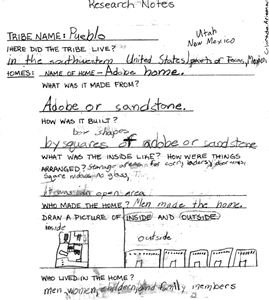 Research Notes
TRIBE NAME: Pueblo
Utah
New Mexico
WHERE DID THE TRIBE LIVE?
in the southwestern United States/parts of Texas, Mexico
HOMES: NAME OF HOME - Adobe home.
WHAT WAS IT MADE FROM?
Adobe or sandstone.
HOW WAS IT BUILT?
box shapes
by squares of adobe or sandstone
WHAT WAS THE INSIDE LIKE? HOW WERE THINGS
ARRANGED? Storage areas for
no glass,
open area
WHO MADE THE HOME? Men made the home.
DRAW A PICTURE OF INSIDE AND OUTSIDE
inside
outside
WHO LIVED IN THE HOME?
men, women, children, and family members